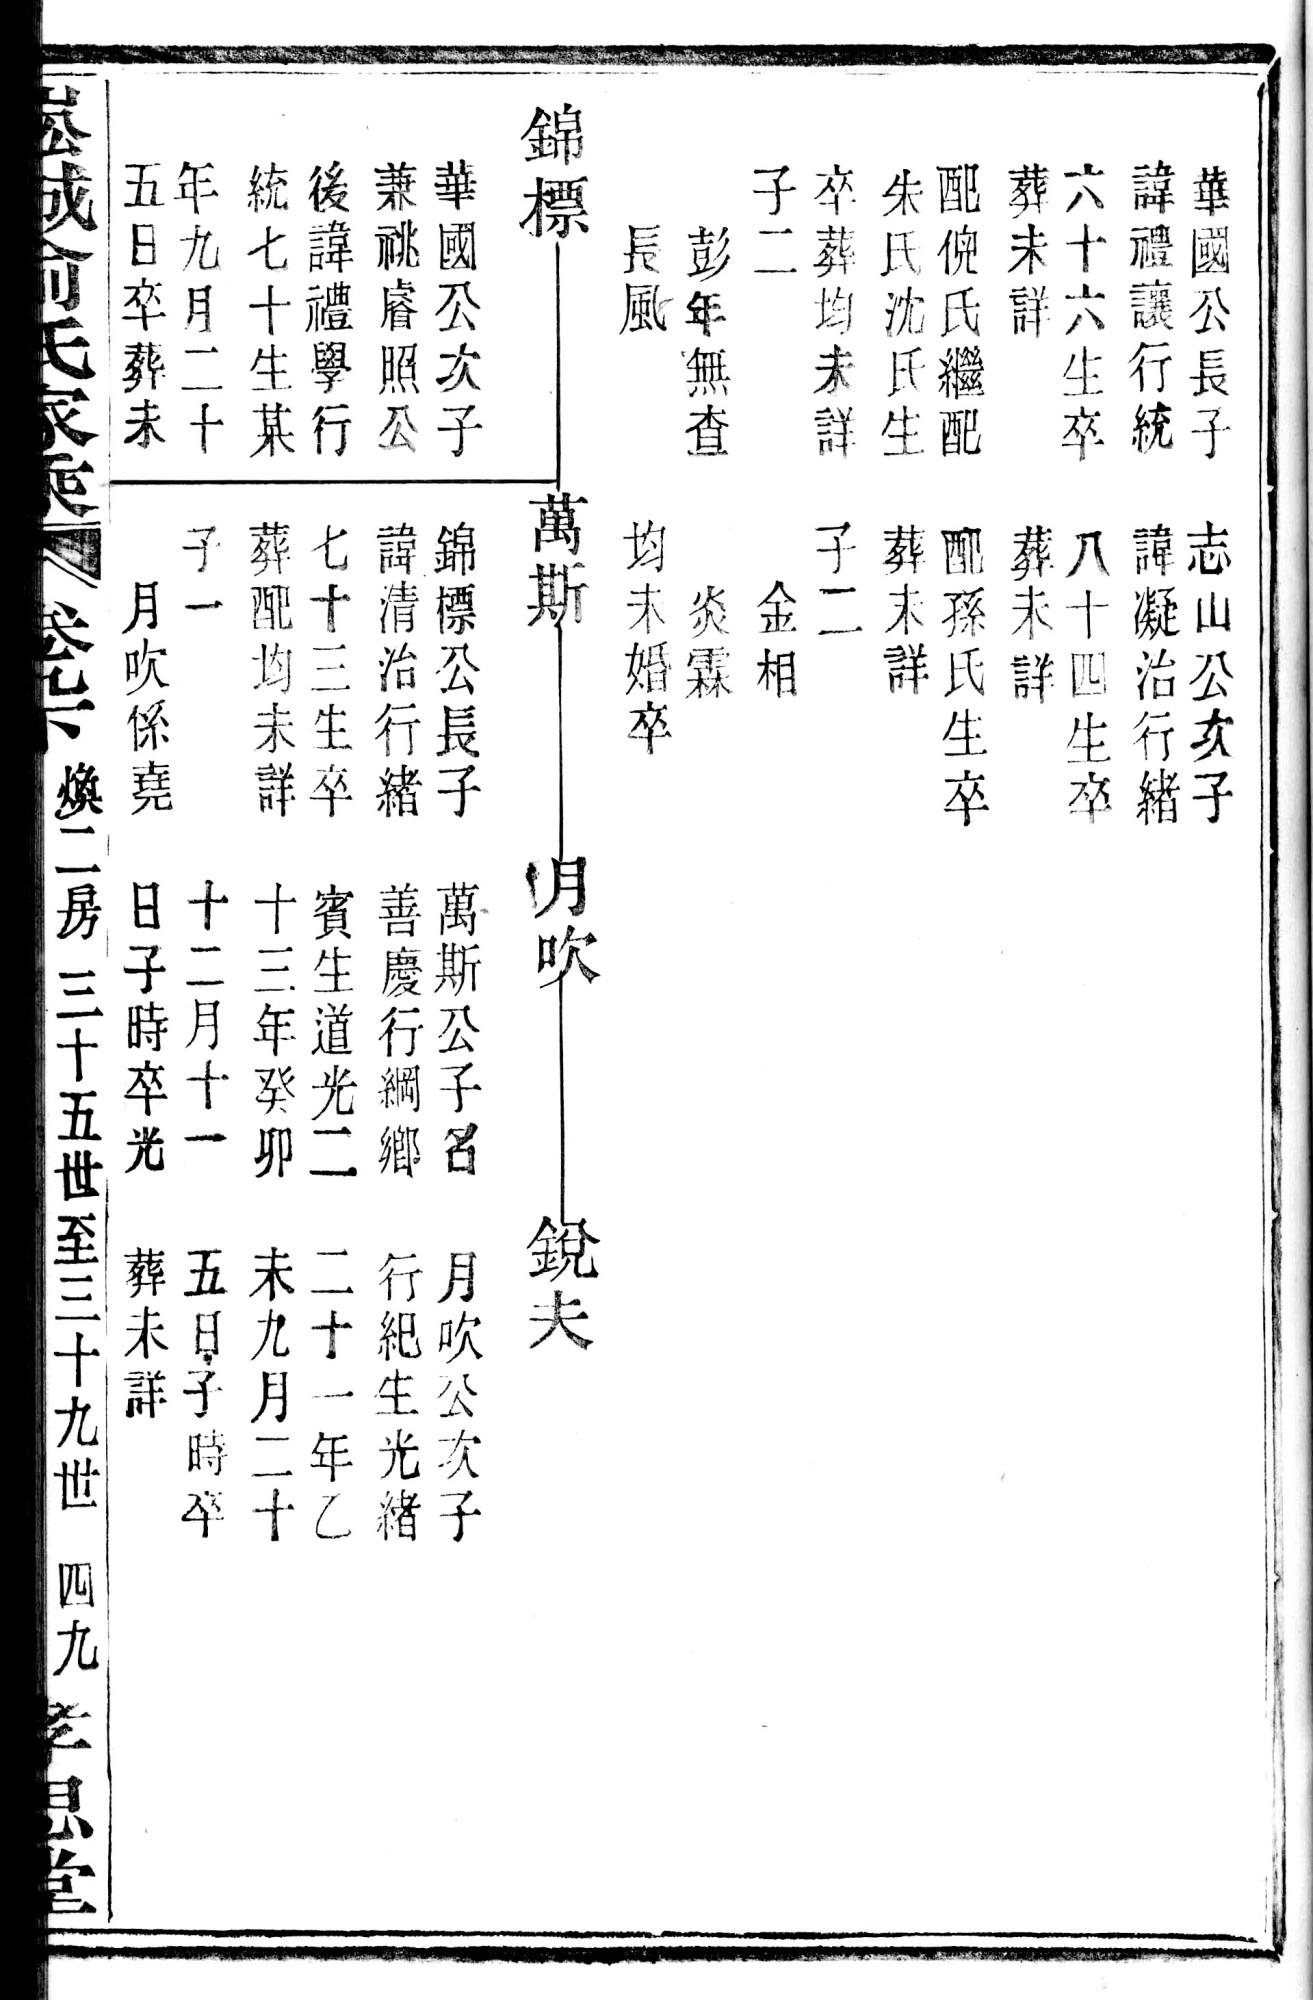 華國公長子
諱禮讓行統
六十六生卒
葬未詳
配倪氏繼配
朱氏沈氏生
卒葬均未詳
子二
彭年無查
長風
志山公次子
諱凝治行緒
八十四生卒
葬未詳
配孫氏生卒
葬未詳
子二
金相
炎霖
均未婚卒
錦標
萬斯
月吹
銳夫
華國公次子
兼祧睿照公
後諱禮學行
統七十生某
年九月二十
五日卒葬未
錦標公長子
諱清治行緒
七十三生卒
葬配均未詳
子一
月吹係堯
萬斯公子名
善慶行綱鄉
賓生道光二
十三年癸卯
十二月十一
日子時卒光
月吹公次子
行紀生光緒
二十一年乙
未九月二十
五日子時卒
葬未詳
崧城俞氏家乘 卷九下 煥二房 三十五世至三十九世 四九 孝思堂